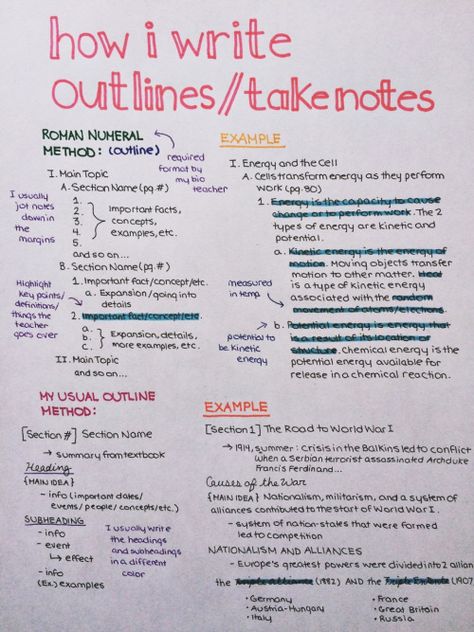 how i write
outlines//take notes
ROMAN NUMERAL
METHOD: (outline)
required
format by
my bio
teacher
I. Main Topic
A. Section Name (pg.#)
1.
2.
3.
4.
5.
Important facts,
concepts,
examples, etc.
and so on...
I usually
jot notes
down in
the
margins
B. Section Name (pg.#)
1. Important fact/concept/etc.
a. Expansion/going into
details
2. Important fact/concept/etc.
a.
b.
c.
Expansion, details,
more examples, etc.
Highlight
key points/
definitions/
things the
teacher
goes over
II. Main Topic
and so on...
EXAMPLE
I. Energy and the Cell
A. Cells transform energy as they perform
work (pg. 80)
1. Energy is the capacity to cause
change or to perform work. The 2
types of energy are kinetic and
potential.
a. Kinetic energy is the energy of
motion. Moving objects transfer
motion to other matter. Heat
is a type of kinetic energy
associated with the random
movement of atoms/electrons.
measured
in temp
b. Potential energy is energy that
is a result of its location or
structure. Chemical energy is the
potential energy available for
release in a chemical reaction.
potential to
be kinetic
energy
MY USUAL OUTLINE
METHOD:
[Section #] Section Name
→ summary from textbook
Heading
{MAIN IDEA}
- info (important dates/
events/people/concepts/etc.)
SUBHEADING
- info
- event
↳ effect
- info
(Ex.) examples
I usually write
the headings
and subheadings
in a different
color
EXAMPLE
[Section 1] The Road to World War I
→ 1914, summer: Crisis in the Balkins led to conflict
when a Serbian terrorist assassinated Archduke
Francis Ferdinand...
Causes of the War
{MAIN IDEA} Nationalism, militarism, and a system of
alliances contributed to the start of World War I.
- system of nation-states that were formed
led to competition
NATIONALISM AND ALLIANCES
- Europe's greatest powers were divided into 2 allian
the Triple Alliance (1882) AND the Triple Entente (1907
• Germany
• Austria-Hungary
• Italy
• France
• Great Britain
• Russia